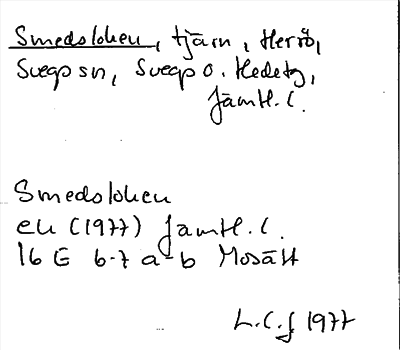 Smedsloken, tjärn, Herrö,
Svegs sn, Svegs o. Hedetg,
Jämtl. l.
Smedsloken
ek (1977) Jämtl. l.
16 E 6-7 a-b Mosätt
L.C.J 1977